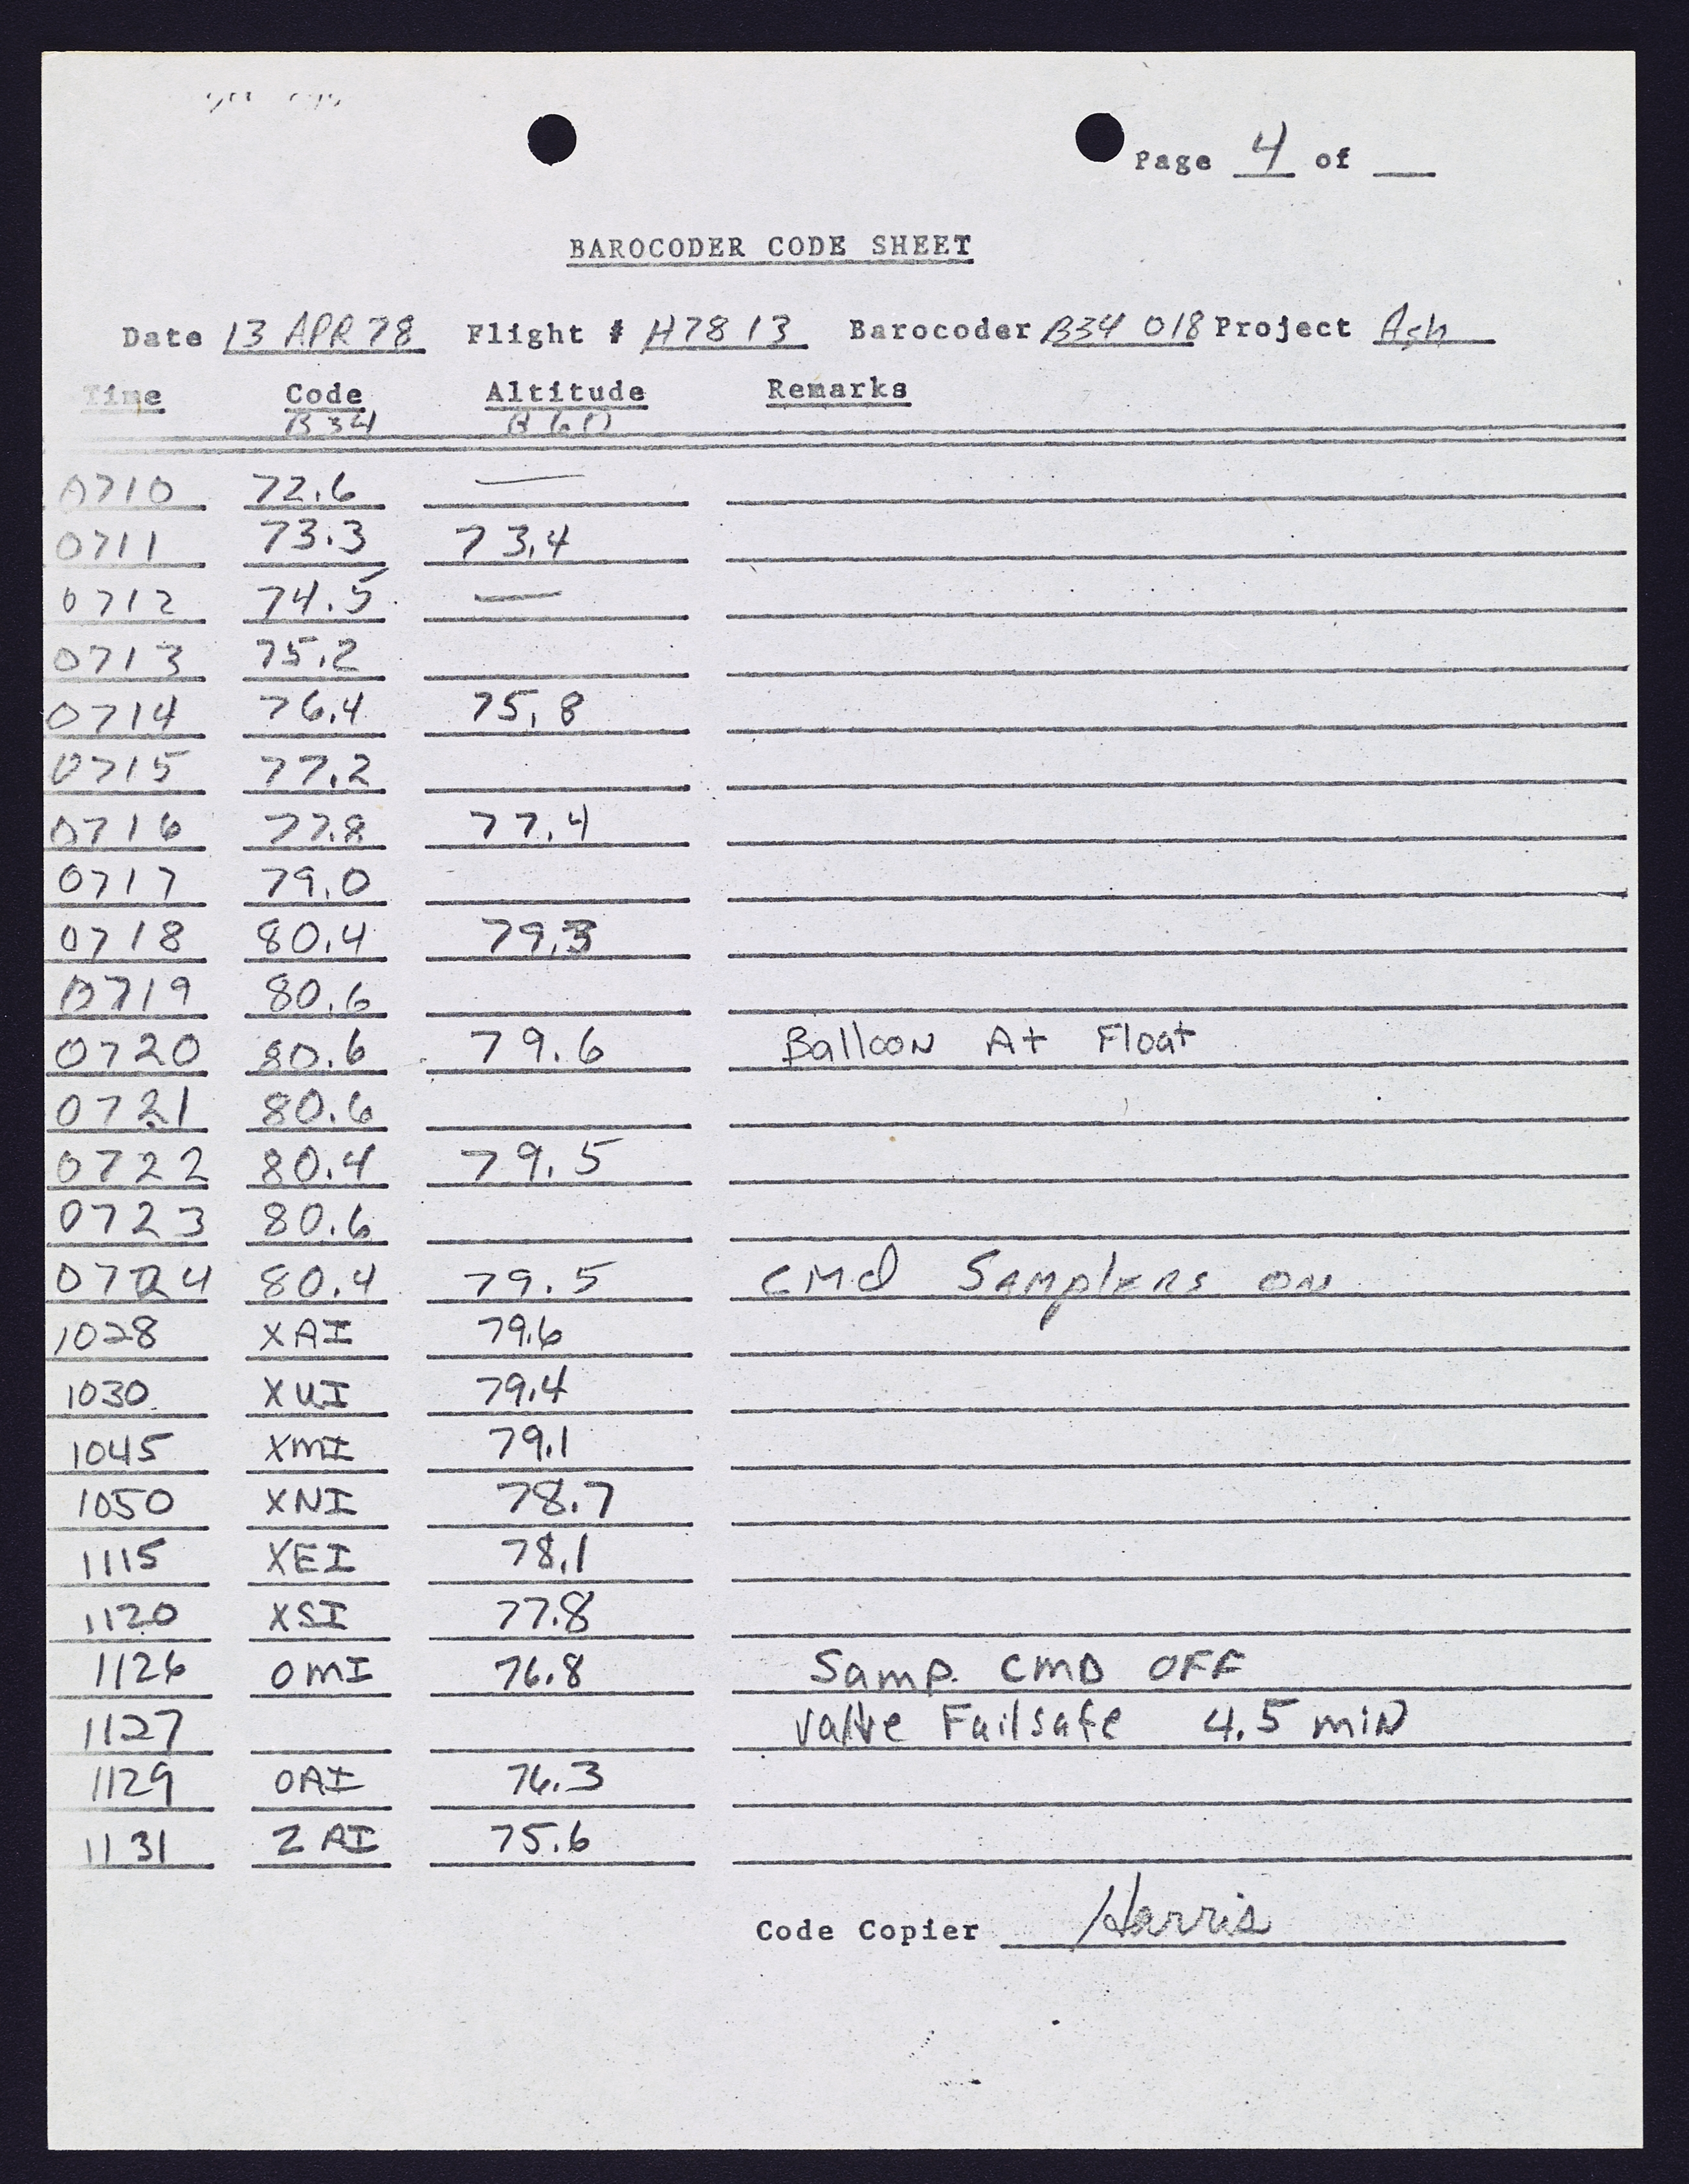 Page 4 of __
BAROCODER CODE SHEET
Date 13 APR 78 Flight # H78 13 Barocoder B34 018 Project Ash
Time Code Altitude Remarks
B34 B60
0710 72.6 —
0711 73.3 73.4
0712 74.5 —
0713 75.2
0714 76.4 75.8
0715 77.2
0716 77.8 77.4
0717 79.0
0718 80.4 79.3
0719 80.6
0720 80.6 79.6 Balloon At Float
0721 80.6
0722 80.4 79.5
0723 80.6
0724 80.4 79.5 CMd SAMplERS ON
1028 XAI 79.6
1030 XUI 79.4
1045 XMI 79.1
1050 XNI 78.7
1115 XEI 78.1
1120 XSI 77.8
1126 OMI 76.8 Samp. CMD OFF
1127 Valve Failsafe 4.5 miN
1129 OAI 76.3
1131 ZAI 75.6
Code Copier Harris